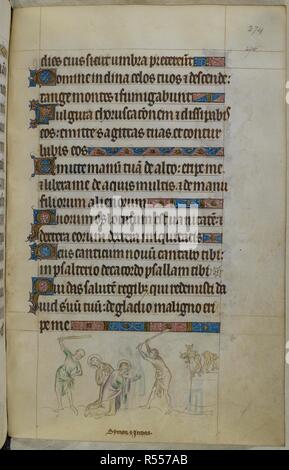 274
dies eius sicut umbra pretereunt
Domine inclina celos tuos & descende:
tange montes & fumigabunt
Fulgura choruscationem & dissipabis
eos: emitte sagittas tuas et contur
babis eos
Emitte manum tuam de alto: eripe me
& libera me de aquis multis: & de manu
filiorum alienorum
Quorum os locutum est vanitatem:
dextera eorum dextera iniquitatis
Deus canticum novum cantabo tibi:
in psalterio decacordo psallam tibi
Qui das salutem regibus qui redemisti da
vid servum tuum: de gladio maligno eri
pe me
Symon & Iudas
alamy
Image ID: R557AB
www.alamy.com